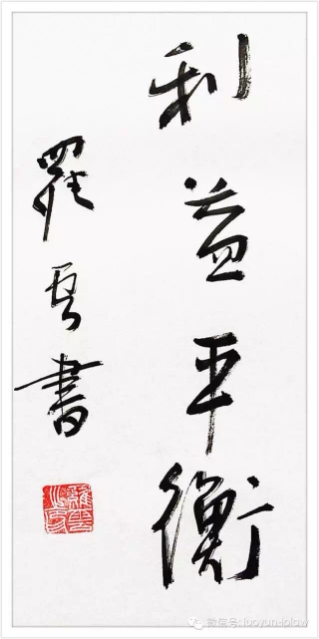 利益平衡
羅雲書
微信号: luoyun-iplaw